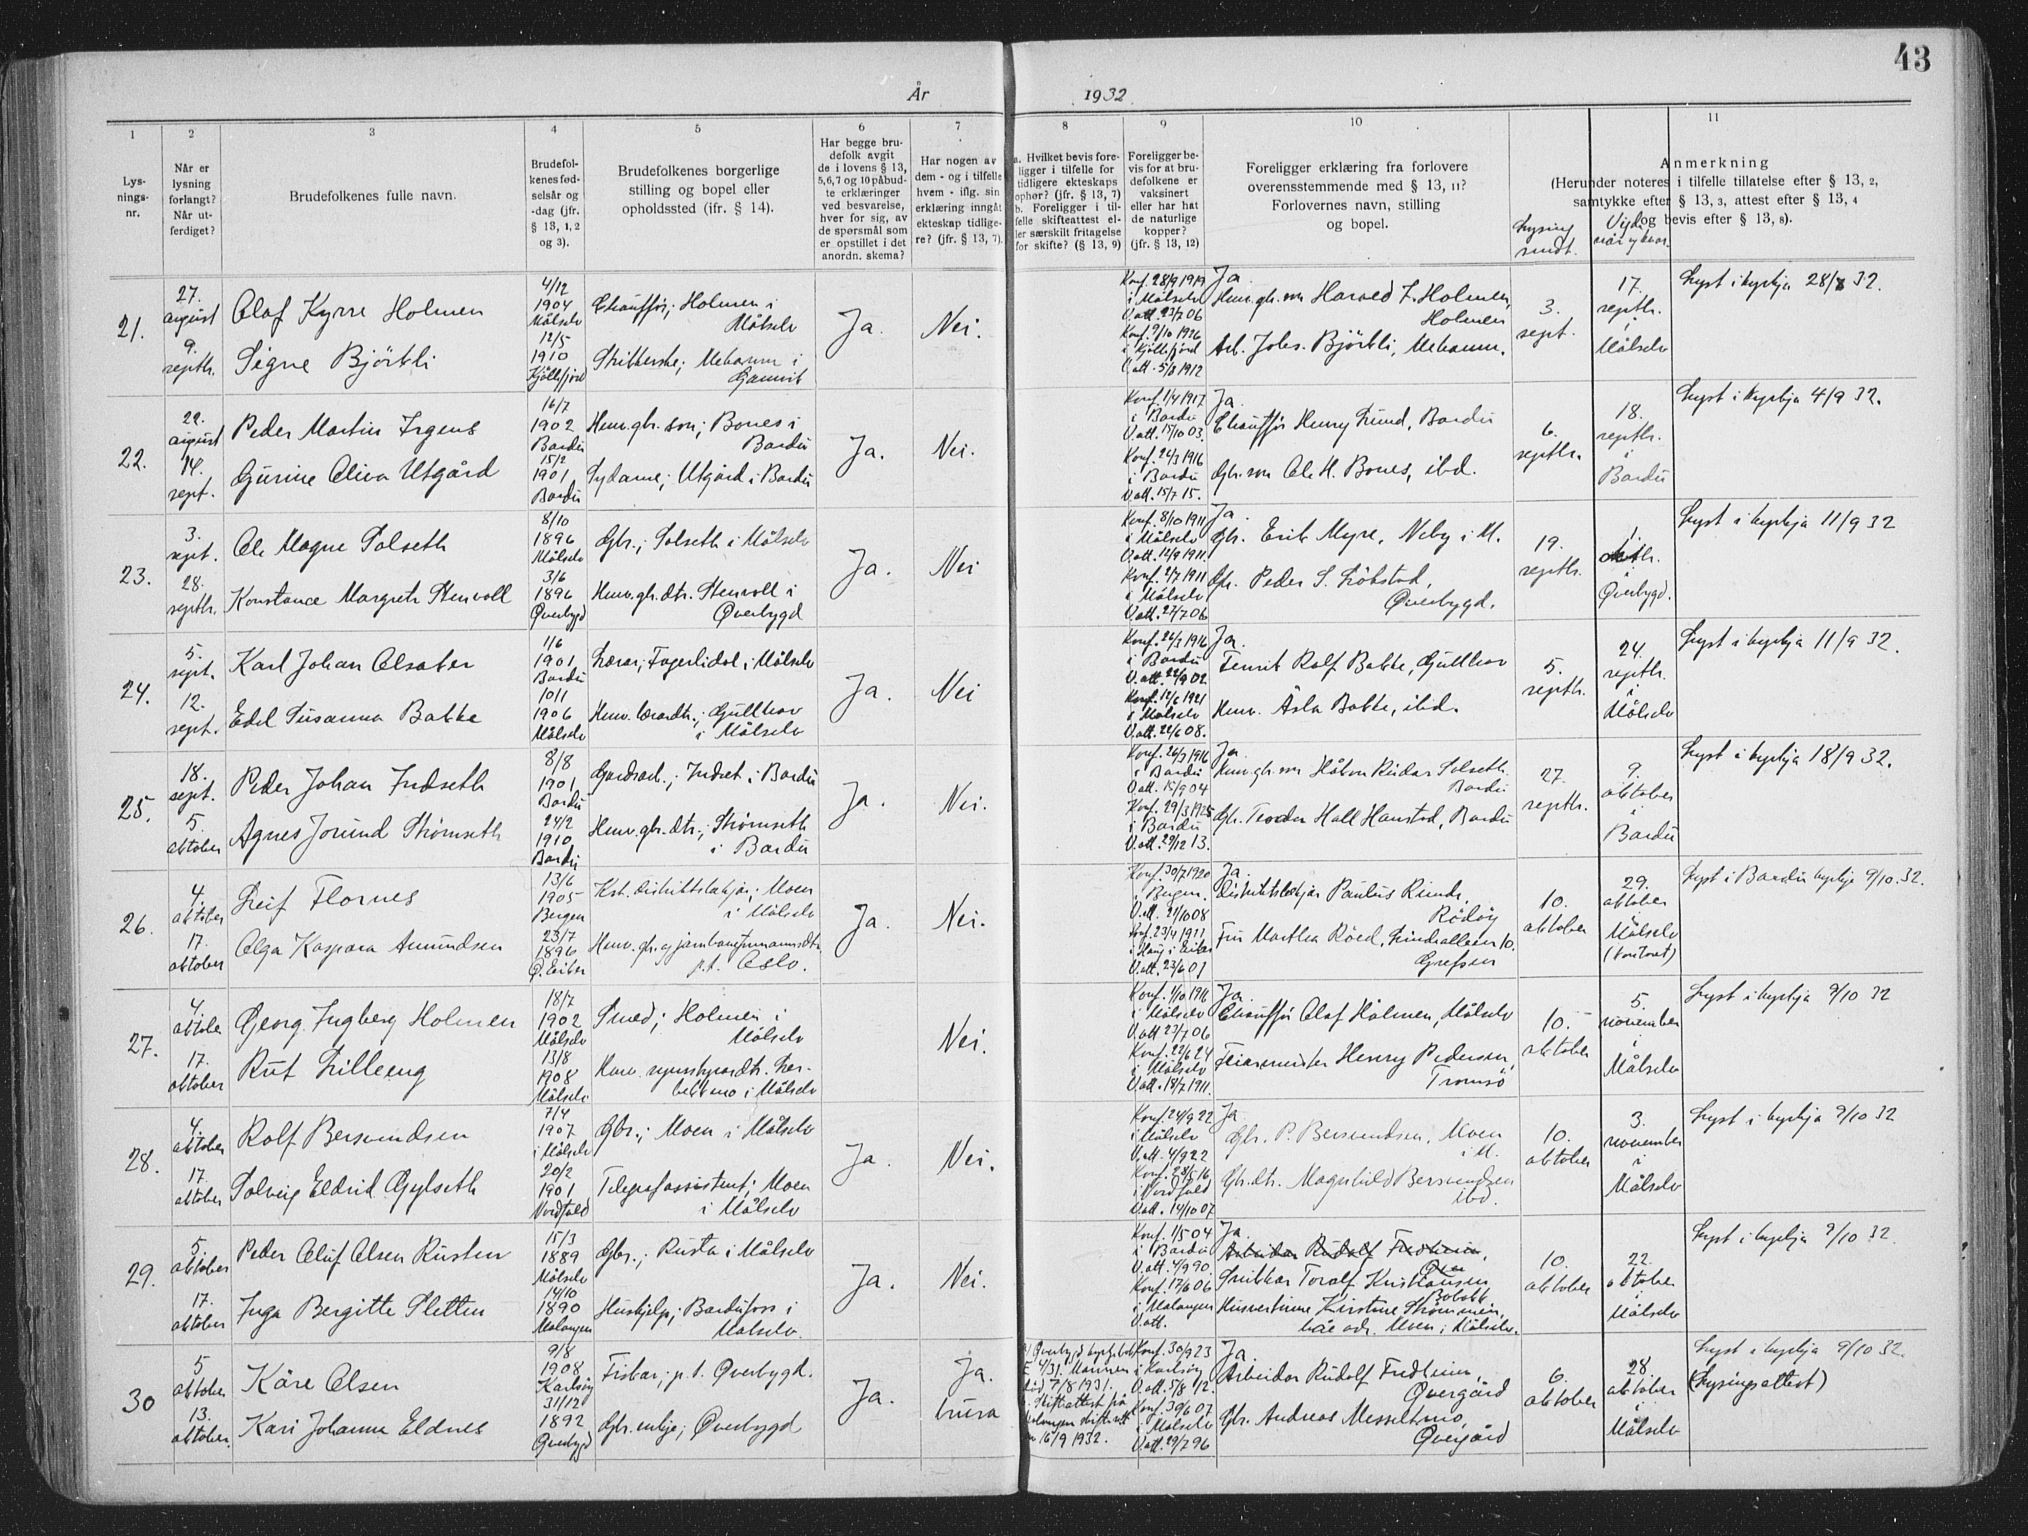 43
År 1932
1 2 3 4 5 6 7 8 9 10 11
Lys-
nings-
nr.
Når er
lysning
forlangt?
Når ut-
ferdiget?
Brudefolkenes fulle navn.
Brudefol-
kenes fød-
selsår og
-dag (jfr.
§ 13, 1, 2
og 3).
Brudefolkenes borgerlige
stilling og bopel eller
opholdssted (ifr. § 14).
Har begge bru-
defolk avgit
de i lovens § 13,
5,6,7 og 10 påbud-
te erklæringer
ved besvarelse,
hver for sig, av
de spørsmål som
er opstillet i det
anordn. skema?
Har nogen av
dem - og i tilfelle
hvem - iflg. sin
erklæring inngåt
ekteskap tidlige-
re? (jfr. § 13, 7).
a. Hvilket bevis fore-
ligger i tilfelle for
tidligere ekteskaps
ophør? (jfr. § 13, 7)
b. Foreligger i til-
felle skifteattest el-
ler særskilt fritagelse
for skifte? (§ 13, 9)
Foreligger be-
vis for at bru-
defolkene er
vaksinert
eller har hat
de naturlige
kopper?
(jfr. § 13, 12)
Foreligger erklæring fra forlovere
overensstemmende med § 13, 11?
Forlovernes navn, stilling
og bopel.
Lysing
sendt.
Vigde
når og hvor.
Anmerkning
(Herunder noteres i tilfelle tillatelse efter § 13, 2,
samtykke efter § 13, 3, attest efter § 13, 4
og bevis efter § 13, 8).
21.
27.
august
9.
septbr.
Olaf Kyrre Holmen
Signe Bjørkli
4/12
1904
Målselv
12/5
1910
Kjøllefjord
Chauffør; Holmen i
Målselv
Mehamn i
Gamvik
Ja.
Nei.
Konf. 28/9 1919
i Målselv
V.att. 23/7 06
Konf. 9/10 1926
i Kjøllefjord
V.att. 5/8 1912
Ja
Hmv. gbr. søn Harald F. Holmen,
Holmen
Arb. Johs. Bjørkli, Mehamn.
3.
sept.
17.
septbr.
i
Målselv
Lyst i kyrkja 28/8 32.
22.
22.
august
14.
sept.
Peder Martin Irgens
Gurine Oliva Utgård
16/7
1902
Bardu
15/2
1901
Bardu
Hmv. gbr. søn; Bones i
Bardu
Sydame; Utgård i Bardu
Ja.
Nei.
Konf. 1/4 1917
i Bardu
V.att. 15/10 03.
Konf. 24/3 1916
i Bardu
V.att. 15/7 15.
Ja.
Chauffør Henry Lund, Bardu
Gbr. søn Ole H. Bones, ibd.
6.
septbr.
18.
septbr.
i
Bardu
Lyst i kyrkja 4/9 32.
23.
3.
sept.
28.
septbr.
Ole Magne Solseth
Konstance Margrete Stenvoll
8/10
1896
Målselv
3/6
1896
Øverbygd
Gbr.; Solseth i Målselv
Hmv. gbr. dtr. Stenvoll i
Øverbygd
Ja.
Nei
Konf. 8/10 1911
i Målselv
V.att. 12/9 1911.
Konf. 2/7 1911
i Målselv
V.att. 27/7 06
Ja
Gbr. Erik Myre, Neby i M.
Gbr. Peder S. Løkstad,
Øverbygd.
19.
septbr.
1.
i
Øverbygd.
Lyst i kyrkja 11/9 32
24.
5.
sept.
12.
sept.
Karl Johan Alsaker
Edel Susanna Bakke
1/6
1901
Bardu
10/1
1906
Målselv
Lærar; Fagerlidal i Målselv
Hmv. lærardtr.; Gullhav
i Målselv
Ja.
Nei
Konf. 26/3 1916
i Bardu
V.att. 22/9 02.
Konf. 12/6 1921
i Målselv
V.att. 22/6 08.
Ja.
Fenrik Rolf Bakke, Gullhav
Hmv. Åsla Bakke, ibd.
5.
septbr.
24.
septbr.
i
Målselv
Lyst i kyrkja 11/9 32.
25.
18.
sept.
5.
oktober
Peder Johan Indseth
Agnes Jorund Strømseth
8/8
1901
Bardu
24/2
1910
Bardu
Gardsarb.; Indset i Bardu
Hmv. gbr. dtr.; Strømseth
i Bardu
Ja.
Nei.
Konf. 26/3 1916
i Bardu
V.att. 15/9 04
K.nf. 29/3 1925
i Bardu
V.att. 29/12 13.
Ja.
Hmv. gbr. søn Håkon Reidar Solseth
Bardu
Gbr. Teodor Hall Hanstad, Bardu
27.
septbr.
9.
oktober
i
Bardu
Lyst i kyrkja 18/9 32.
26.
4.
oktober
17.
oktober
Leif Flornes
Olga Kaspara Amundsen
13/6
1905
Bergen
23/7
1896
Ø. Eiker
Kst. distriktslækjar; Moen
i Målselv
p.t. Oslo.
Ja.
Nei.
Konf. 30/7 1920
i Bergen
V.att. 21/10 08
Konf. 23/4 1911
i Haug i Eiker
V.att. 23/6 01
Ja.
Distriktslækjar Paulus Riende,
Rödöy
Fru Martha Röed, Lindealleen 10.
Grefsen
10.
oktober
29.
oktober
i
Målselv
(kontoret)
Lyst i Bardu kyrkje 9/10. 32.
27.
4.
oktobe
17.
oktober
Georg Ingberg Holmen
Rut Lilleeng
18/7
1902
Målselv
13/8
1908
Målselv
Smed; Holmen i
Målselv
i Målselv
Nei.
Konf. 1/10 1916
i Målselv
V.att 23/7 06
Konf. 22/6 24
i Målselv
V.att. 18/7 1911.
Ja.
Chauffør Olaf Holmen, Målselv
Feiarmeister Henry Pedersen,
Tromsø
10.
oktober
5.
november
i
Målselv
Lyst i kyrkja 9/10 32
28.
4.
oktober
17.
oktober
Rolf Bersvendsen
Solveig Eldrid Gylseth
7/4
1907
i Målselv
20/2
1901
Nordfold
Gbr.; Moen i Målselv
Telegrafassistent; Moen
i Målselv
Ja.
Nei.
Konf. 24/9 22
i Målselv
V.att. 4/9 22
Konf. 28/5 16
i Nordfold
V.att. 14/10 07
Ja
Gbr. P. Bersvendsen, Moen
i M.
Gbr. dtr. Magnhild Bersvendsen
ibd.
10.
oktober
3.
november
i
Målselv
Lyst i kyrkja 9/10 32
29.
5.
oktober
17.
oktober
Peder Oluf Olsen Rusten
Inga Bergitte Sletten
15/3
1889
Målselv
14/10
1890
Malangen
Gbr.; Rusta i Målselv
Hushjelp; Bardufoss i
Målselv.
Ja.
Nei.
Konf. 1/5 04
i Bardu
V.att. 4/9 90.
Konf. 17/6 06
i Malangen
V.att.
Ja.
Arbeidar Rudolf Fredheim,
Snikkar Toralf Kristiansen
Husvertinne Kirstine Strømmen,
båe adr. Moen i Målselv.
10.
oktober
22.
oktober
i
Målselv
Lyst i kyrkja 9/10 32.
30
5
oktober
13.
oktober.
Kåre Olsen
Kari Johanna Eldnes
9/8
1908
Karlsøy
31/12
1892
Øverbygd
Fiskar; p.t. Øverbygd.
Gbr. enkje; Øverbygd
Ja.
Ja.
brura
Øverbygd kyrkjebok
4/31. Mannen
død 7/8 1931.
Skifteattest frå
Malangen skifterett
16/9 1932.
Konf. 30/9 23
i Karlsøy
V.att. 5/8 12.
Konf. 30/6 07
i Målselv
V.att. 29/7 96
Ja.
Arbeidar Rudolf Fredheim,
Øvergård
Gbr. Andreas Messeltmo,
Øvergård
6.
oktober
28.
oktober
i
Målselv
Lyst i kyrkja 9/10 32.
(Lysingsattest)